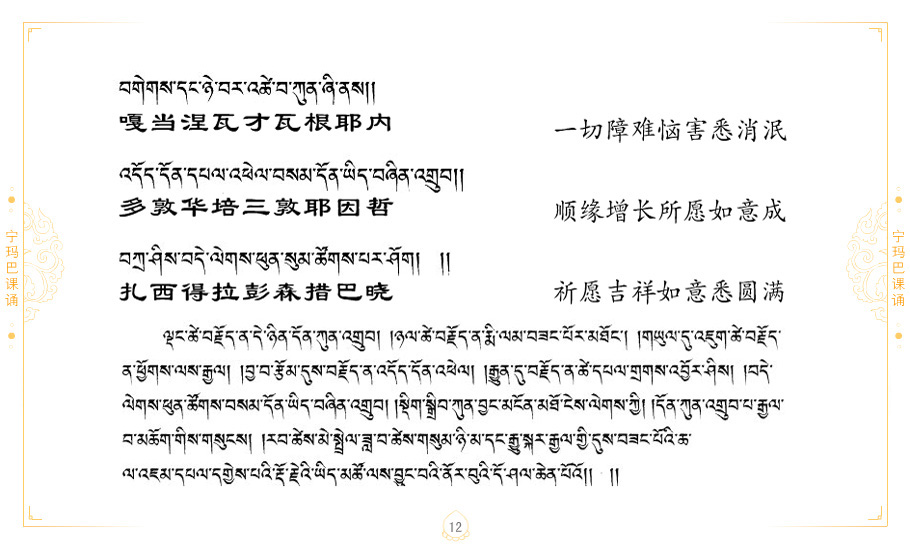 བགེགས་དང་ཉེ་བར་འཚེ་བ་ཀུན་ཞི་ནས།།
嘎当涅瓦才瓦根耶内
一切障难恼害悉消泯
འདོད་དོན་དཔལ་འཕེལ་བསམ་དོན་ཡིད་བཞིན་འགྲུབ།།
多敦华培三敦耶因哲
顺缘增长所愿如意成
བཀྲ་ཤིས་བདེ་ལེགས་ཕུན་སུམ་ཚོགས་པར་ཤོག། །།
扎西得拉彭森措巴晓
祈愿吉祥如意悉圆满
ལྡང་ཚེ་བརྗོད་ན་དེ་ཉིན་དོན་ཀུན་འགྲུབ། །ཉལ་ཚེ་བརྗོད་ན་རྨི་ལམ་བཟང་པོར་མཐོང་། །གཡུལ་དུ་འཇུག་ཚེ་བརྗོད་
ན་ཕྱོགས་ལས་རྒྱལ། །བྱ་བ་རྩོམ་དུས་བརྗོད་ན་འདོད་དོན་འཕེལ། །རྒྱུན་དུ་བརྗོད་ན་ཚེ་དཔལ་གྲགས་འབྱོར་ཤིས། །བདེ་
ལེགས་ཕུན་ཚོགས་བསམ་དོན་ཡིད་བཞིན་འགྲུབ། །སྡིག་སྒྲིབ་ཀུན་བྱང་མངོན་མཐོ་ངེས་ལེགས་ཀྱི། །དོན་ཀུན་འགྲུབ་པ་རྒྱལ་
བ་མཆོག་གིས་གསུངས། །རབ་ཚེས་མེ་སྤྲེལ་ཟླ་བ་ཚེས་གསུམ་ཉི་མ་དང་རྒྱུ་སྐར་རྒྱལ་གྱི་དུས་བཟང་པོའི་ཆ་
ལ་འཇམ་དཔལ་དགྱེས་པའི་རྡོ་རྗེའི་ཡིད་མཚོ་ལས་བྱུང་བའི་ནོར་བུའི་དོ་ཤལ་ཆེན་པོའོ།། །།
宁玛巴课诵
宁玛巴课诵
12